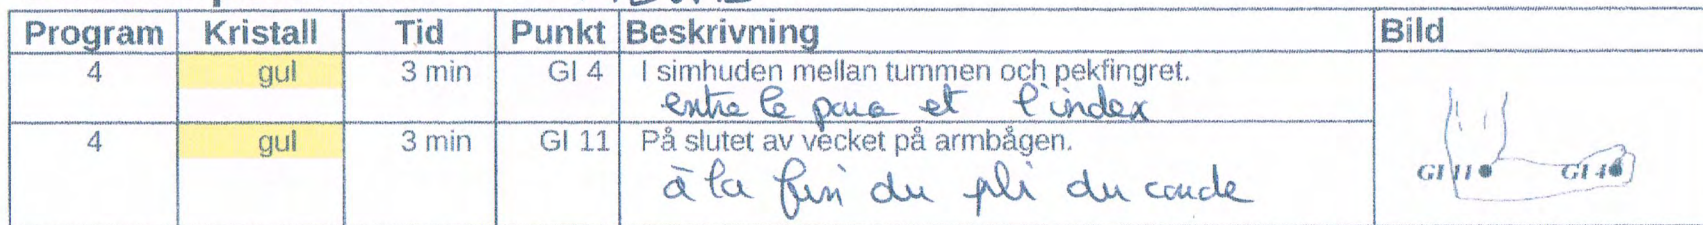 Program Kristall Tid Punkt Beskrivning Bild
4 gul 3 min GI 4 I simhuden mellan tummen och pekfingret.
entre le pouce et l'index
4 gul 3 min GI 11 På slutet av vecket på armbågen.
à la fin du pli du coude
GI 11 GI 4